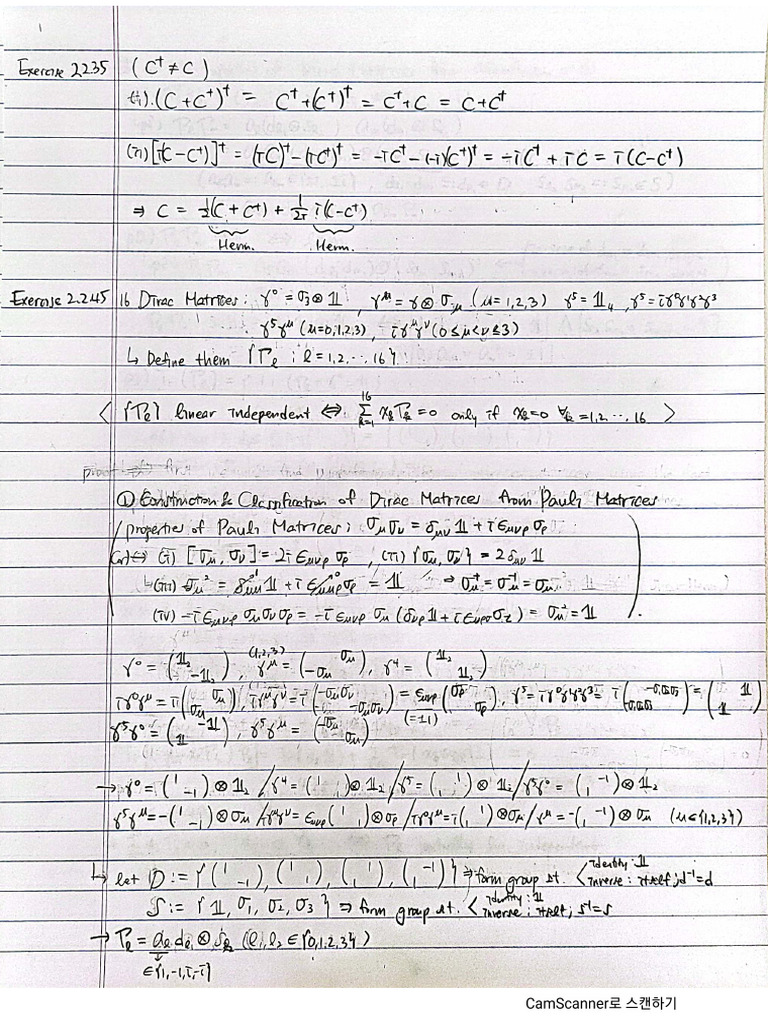 Exercise 2.2.35 (C† ≠ C)
(i). (C + C†)† = C† + (C†)† = C† + C = C + C†
(ii) [i(C − C†)]† = (iC)† − (iC†)† = −iC† − (−i)(C†)† = −iC† + iC = i(C − C†)
⇒ C = 1/2 (C + C†) + 1/2i i(C − C†)
Herm. Herm.
Exercise 2.2.45 16 Dirac Matrices : γ⁰ = σ₃ ⊗ 𝟙 , γ^μ = γ ⊗ σ_μ (μ = 1, 2, 3) γ⁵ = 𝟙₄ , γ⁵ = iγ⁰γ¹γ²γ³
γ⁵γ^μ (μ = 0, 1, 2, 3) , iγ^μγ^ν (0 ≤ μ < ν ≤ 3)
↳ Define them {Γ_ℓ ; ℓ = 1, 2, ⋯, 16}.
< {Γ_k} linear independent ⇔ Σ_{k=1}^{16} x_k Γ_k = 0 only if x_k = 0 ∀k = 1, 2, ⋯, 16 >
① Construction & Classification of Dirac Matrices from Pauli Matrices
properties of Pauli Matrices ; σ_μσ_ν = δ_μν 𝟙 + iε_μνρ σ_ρ
⇔ (i) [σ_μ, σ_ν] = 2iε_μνρ σ_ρ , (ii) {σ_μ, σ_ν} = 2δ_μν 𝟙
(iii) σ_μ² = δ_μμ 𝟙 + iε_μμρ σ_ρ = 𝟙 ⇒ σ_μ† = σ_μ⁻¹ = σ_μ
(iv) −iε_μνρ σ_μσ_νσ_ρ = −iε_μνρ σ_μ (δ_νρ 𝟙 + iε_νρσ σ_z) = σ_μ² = 𝟙
γ⁰ = (𝟙₂ −𝟙₂) , γ^μ (1,2,3) = (−σ_μ σ_μ) , γ⁴ = (𝟙₂ 𝟙₂)
iγ⁰γ^μ = i(σ_μ σ_μ) , iγ^μγ^ν = i(−σ_μσ_ν −σ_μσ_ν) = ε_μνρ (σ_ρ σ_ρ) , γ⁵ = iγ⁰γ¹γ²γ³ = i(−σ₁σ₂σ₃ −σ₁σ₂σ₃) = (𝟙 𝟙)
γ⁵γ⁰ = (𝟙 −𝟙) , γ⁵γ^μ = (−σ_μ σ_μ) (=±1)
→ γ⁰ = (1 −1) ⊗ 𝟙₂ / γ⁴ = (1 1) ⊗ 𝟙₂ / γ⁵ = (1 1) ⊗ 𝟙₂ / γ⁵γ⁰ = (1 −1) ⊗ 𝟙₂
γ⁵γ^μ = −(1 −1) ⊗ σ_μ / iγ^μγ^ν = ε_μνρ (1 1) ⊗ σ_ρ / iγ⁰γ^μ = i(1 1) ⊗ σ_μ / γ^μ = −(1 −1) ⊗ σ_μ (μ ∈ {1,2,3})
↳ let D := {(1 −1), (1 1), (1 1), (1 −1)} ⇒ form group st. < identity : 𝟙 inverse : itself ; d⁻¹ = d
S := {𝟙, σ₁, σ₂, σ₃} ⇒ form group st. < identity : 𝟙 inverse : itself ; s⁻¹ = s
→ Γ_ℓ = a_ℓ d_ℓ₁ ⊗ s_ℓ₂ (ℓ₁, ℓ₂ ∈ {0, 1, 2, 3})
∈ {1, −1, i, −i}
CamScanner로 스캔하기